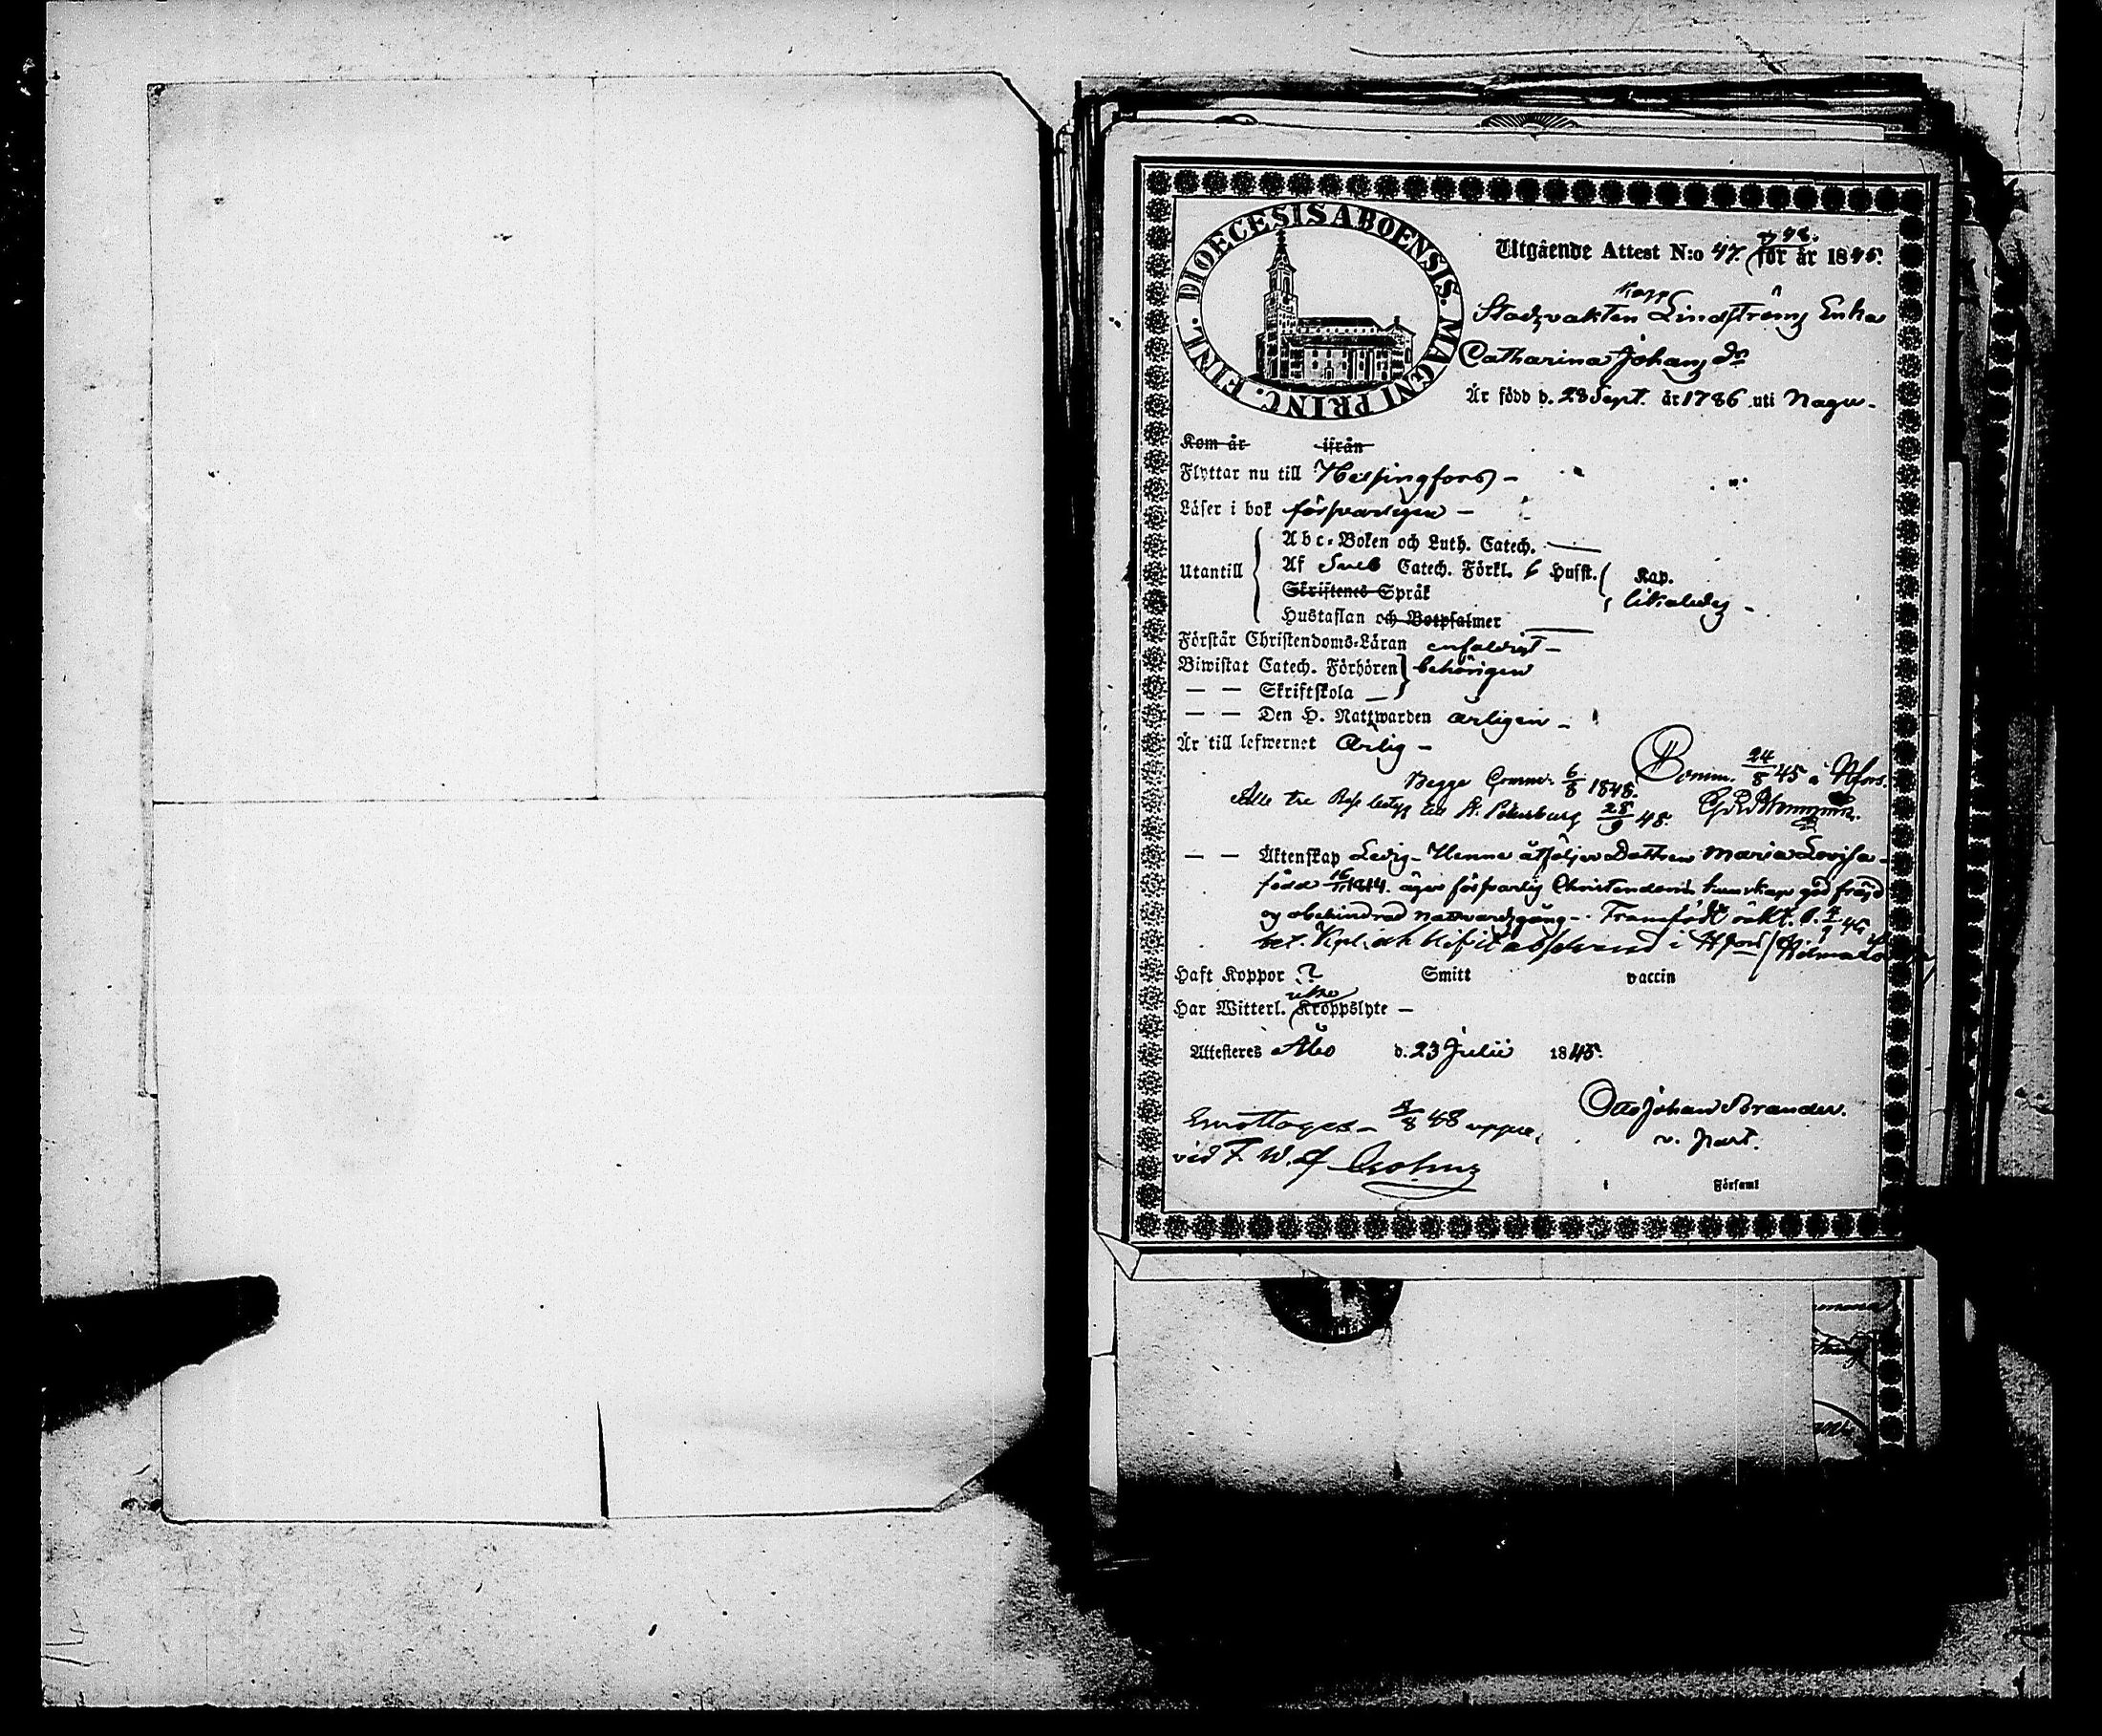 DIOECESIS ABOENSIS. MAGNI PRINC. FINL.
Utgående Attest N:o 47. för år 1845.
Stadzvakten Lindströms Enka
Catharina Johans dr
Är född d. 28 Sept. år 1786 uti Nagu -
Kom år ifrån
Flyttar nu till Helsingfors -
Läser i bok försvarligen -
Utantill
Abc-Boken och Luth. Catech. —
Af Sveb Catech. Förkl. 6 Hufst. Kap.
Skriftenes Språk likaledes -
Hustaflan och Botpsalmer —
Förstår Christendoms-Läran enfaldigt -
Biwistat Catech. Förhören behörigen
— — Skriftskola —
— — Den H. Nattwarden årligen -
Är till lefwernet Ärlig -
Comm. 24/8 45 i Hfors.
Begge Comm. 6/8 1848.
Alla tre till St. Petersburg 28/9 48.
— — Äktenskap Ledig - Henne åtföljer Dottren Maria Lovisa -
född 1814. äger försvarlig Christendoms kunskap god frejd
og obehindrad nattvardsgång -
i Hfors
Haft Koppor ? Smitt vaccin
Har Witterl. Kroppslyte —
Attesteres Åbo d. 23 Julii 1845.
Otto Johan Brander.
v. past.
Emottages - /8 48
vid
i Församl